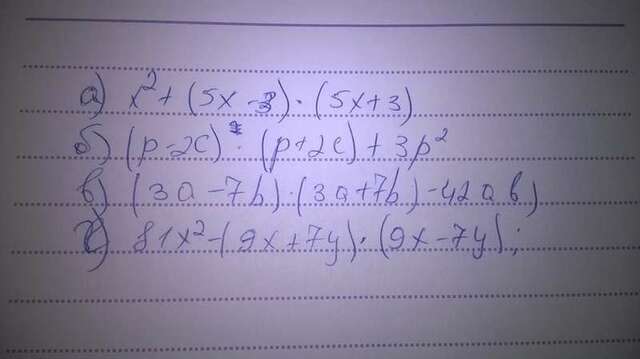 а) x² + (5x - 3) · (5x + 3)
б) (p - 2c) · (p + 2c) + 3p²
в) (3a - 7b) · (3a + 7b) - 42ab)
г) 81x² - (9x + 7y) · (9x - 7y) ;